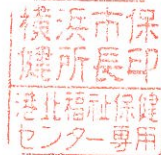 横浜市保
健所長印
港北福祉保健
センター専用